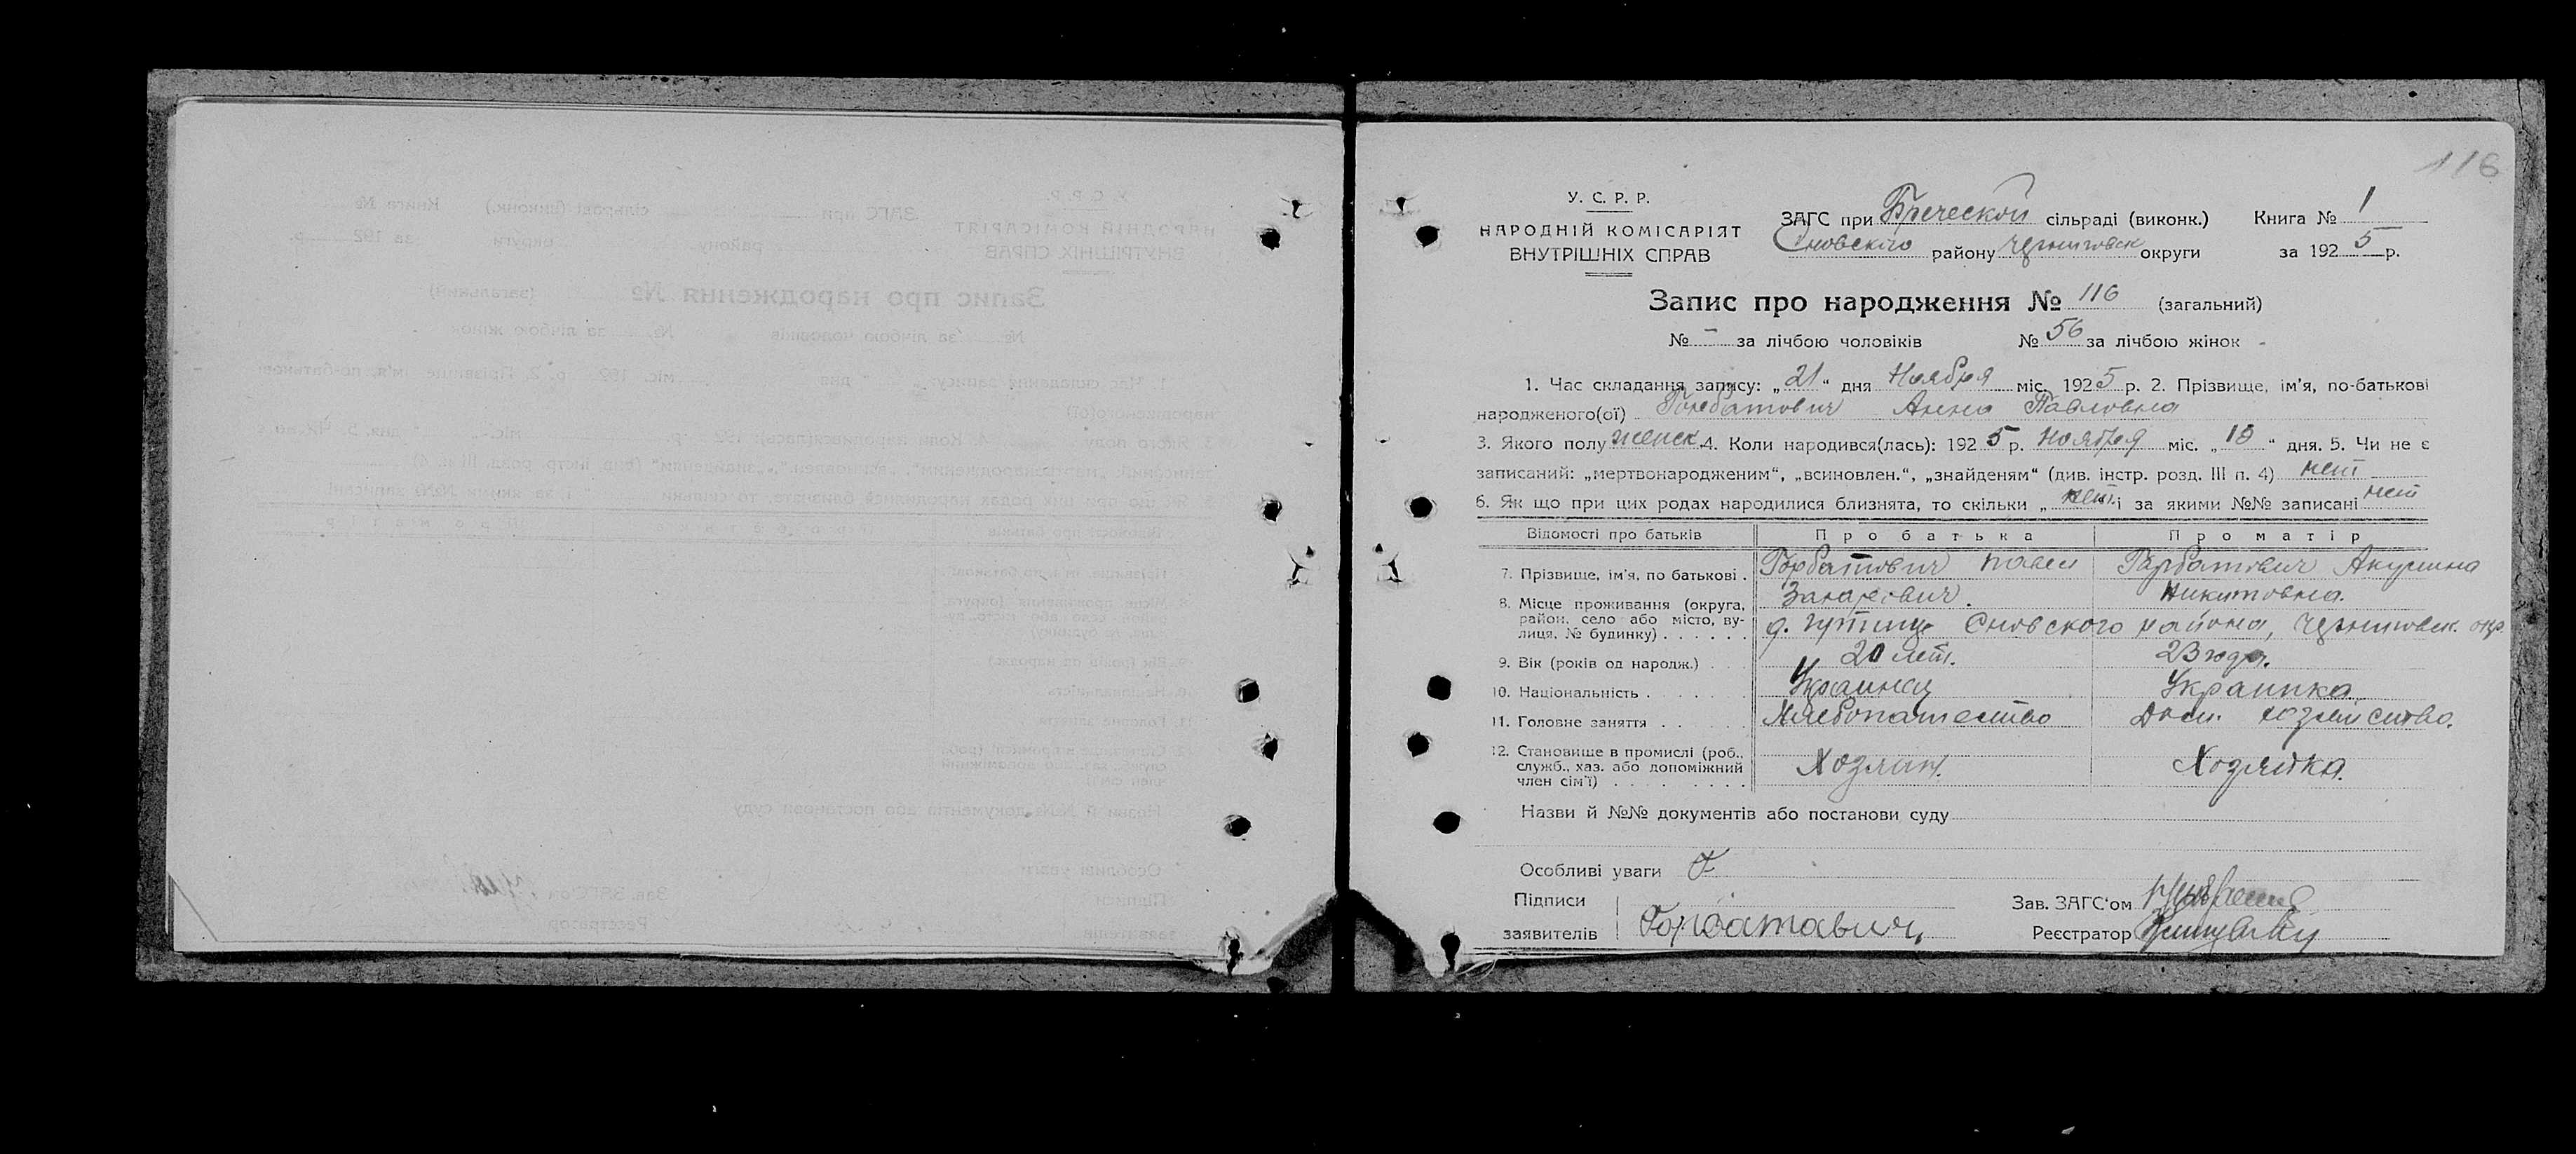 116
У. С. Р. Р.
НАРОДНІЙ КОМІСАРІЯТ
ВНУТРІШНІХ СПРАВ
ЗАГС при сільраді (виконк.) Книга № 1
Сновского району Черниговск округи за 1925 р.
Запис про народження № 116 (загальний)
№ – за лічбою чоловіків № 56 за лічбою жінок
1. Час складання запису: „21“ дня Ноября міс. 1925 р. 2. Прізвище, ім'я, по-батькові
народженого(ої) Горбатович Анна Павловна
3. Якого полу женск. 4. Коли народився(лась): 1925 р. Ноября міс. „ “ дня. 5. Чи не є
записаний: „мертвонародженим“, „всиновлен.“, „знайденям“ (див. інстр. розд. III п. 4) нет
6. Як що при цих родах народилися близнята, то скільки „ нет і за якими №№ записані нет
Відомості про батьків Про батька Про матір
7. Прізвище, ім'я, по батькові . Горбатович Павел Горбатович Акулина
Захарович. Никитовна.
8. Місце проживання (округа,
район, село або місто, ву-
лиця, № будинку) . . . . . . д. Сновского района, Черниговск. окр.
9. Вік (років од народж.) . . . 20 лет. 23 года.
10. Національність . . . . . . Украинец Украинка
11. Головне заняття . . . . . Хлебопашество Дом. хозяйство.
12. Становище в промислі (роб.,
служб., хаз. або допоміжний
член сім'ї) . . . . . . . . . Хозяин. Хозяйка.
Назви й №№ документів або постанови суду
Особливі уваги
Підписи
заявителів Горбатович
Зав. ЗАГС'ом
Реєстратор